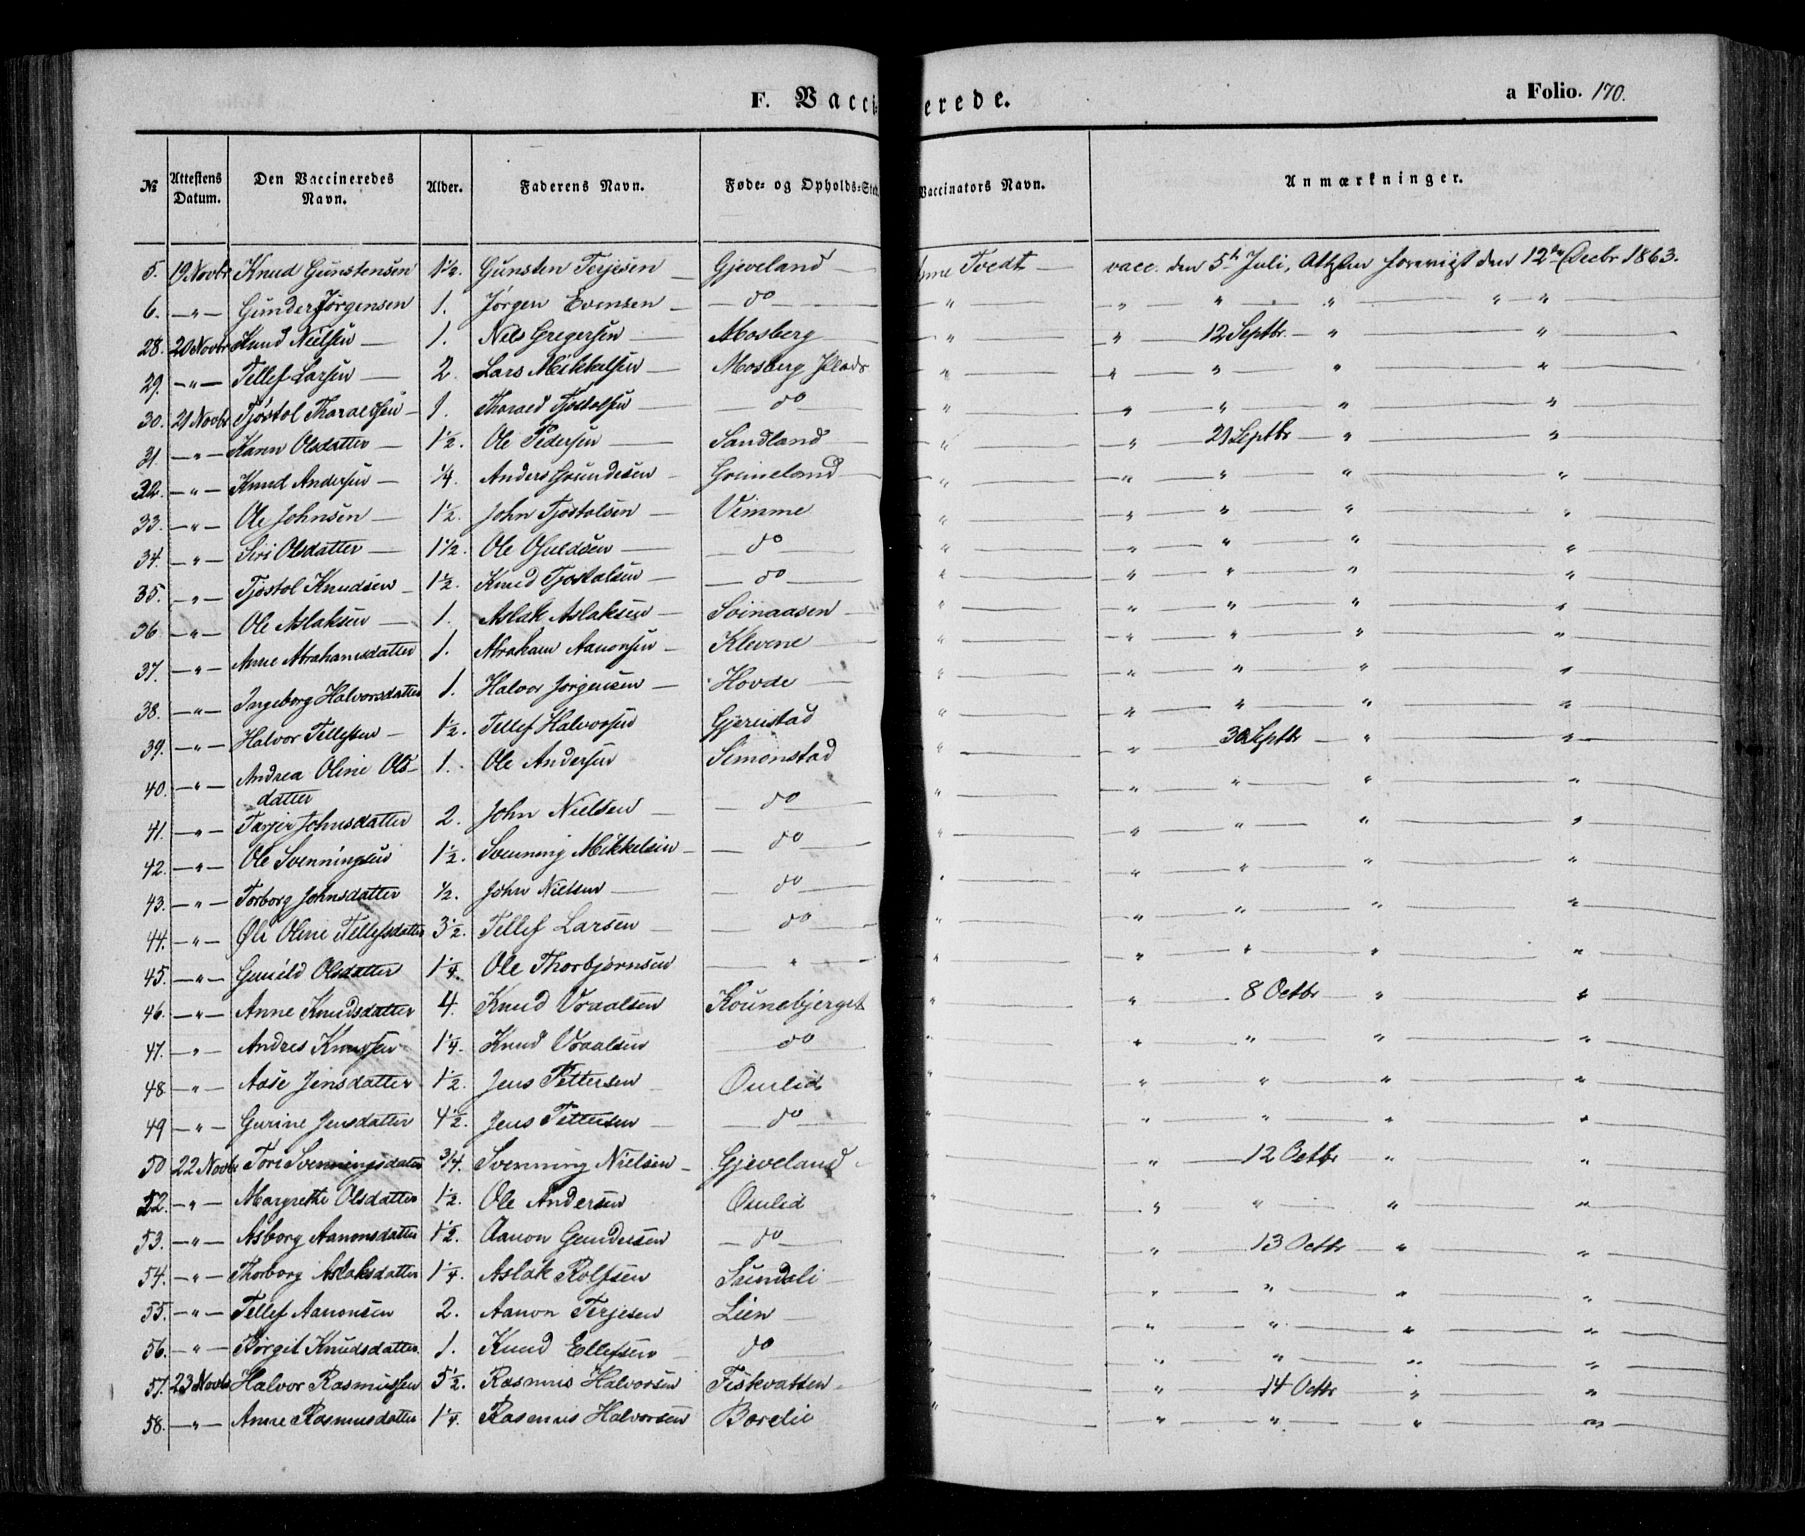 F. Vaccinerede. a Folio. 170.
№ Attestens Datum. Den Vaccineredes Navn. Alder. Faderens Navn. Føde- og Opholds-Sted Vaccinators Navn. Anmærkninger.
5. 19 Novbr Knud Gunstensen 1½. Gunsten Terjesen Gjeveland Tvedt vacc. den 5te Juli, den 12te Decbr 1863.
6. — " — Gunder Jørgensen 1. Jørgen Evensen — do — " " " " " "
28. 20 Novbr Knud Nielsen 1. Nils Gregersen Mosberg " " 12 Septbr " "
29. — " — Tellef Larsen 2. Lars Mikkelsen Mosberg Plads " " " " "
30. 21 Novbr Tjøstol Tharaldsen 1. Tharald Tjøstolsen — do — " " " " "
31. — " — Karen Olsdatter 1½. Ole Pedersen Sandland " " 21 Septbr " "
32. — " — Knud Andersen ¼. Anders Gundesen Grimeland " " " " "
33. — " — Ole Johnsen 1½. John Tjøstolsen Vimme " " " " "
34. — " — Siri Olsdatter 1½. Ole Osuldsen — do — " " " " "
35. — " — Tjøstol Knudsen 1½. Knud Tjostolsen — do — " " " " "
36 — " — Ole Aslaksen 1. Aslak Aslaksen Svinaasen " " " " "
37. — " — Anne Abrahamsdatter 1. Abraham Aanonsen Klevene " " " " "
38. — " — Ingeborg Halvorsdatter 1. Halvor Jørgensen Hovde " " " " "
39. — " — Halvor Tellefsen 1½. Tellef Halvorsen Gjerustad " " 30 Septbr " "
40. — " — Andrea Oline Ols-
datter 1. Ole Andersen Simonstad " " " " "
41. — " — Tarjer Johnsdatter 2. John Nielsen — do — " " " " "
42. — " — Ole Svenningsen 1½. Svenning Mikkelsen — do — " " " " "
43. — " — Torborg Johnsdatter ½. John Nielsen — do — " " " " "
44. — " — Oline Tellefsdatter 3½. Tellef Larsen — do — " " " " "
45. — " — Gunild Olsdatter 1¼. Ole Thorbjørnsen — " — " " " " "
46. — " — Anne Knudsdatter 4. Knud Vraalsen Kounebjerget " " 8 Octbr " "
47. — " — Andres Knudsen 1¼. Knud Vraalsen — do — " " " " "
48 — " — Aase Jensdatter 1½. Jens Pettersen Omlid " " " " "
49 — " — Gurine Jensdatter 4½. Jens Pettersen — do — " " " " "
50 22 Novbr Tore Svenningsdatter ¾. Svenning Nielsen Gjeveland " " 12 Octbr " "
52. — " — Margrethe Olsdatter 1½. Ole Andersen Omlid " " " " "
53. — " — Asborg Aanonsdatter 1½. Aanon Gundersen — do — " " 13 Octbr " "
54. — " — Thorborg Aslaksdatter 1¼. Aslak Rolfsen Sundsli " " " " "
55. — " — Tellef Aanonsen 2. Aanon Terjesen Lien " " " " "
56. — " — Børgit Knudsdatter 1. Knud Ellefsen do " " " " "
57. 23 Novbr Halvor Rasmussen 5½. Rasmus Halvorsen Fiskvatten " " 14 Octbr " "
58. — " — Anne Rasmusdatter 1¼. Rasmus Halvorsen Borelie " " " " "